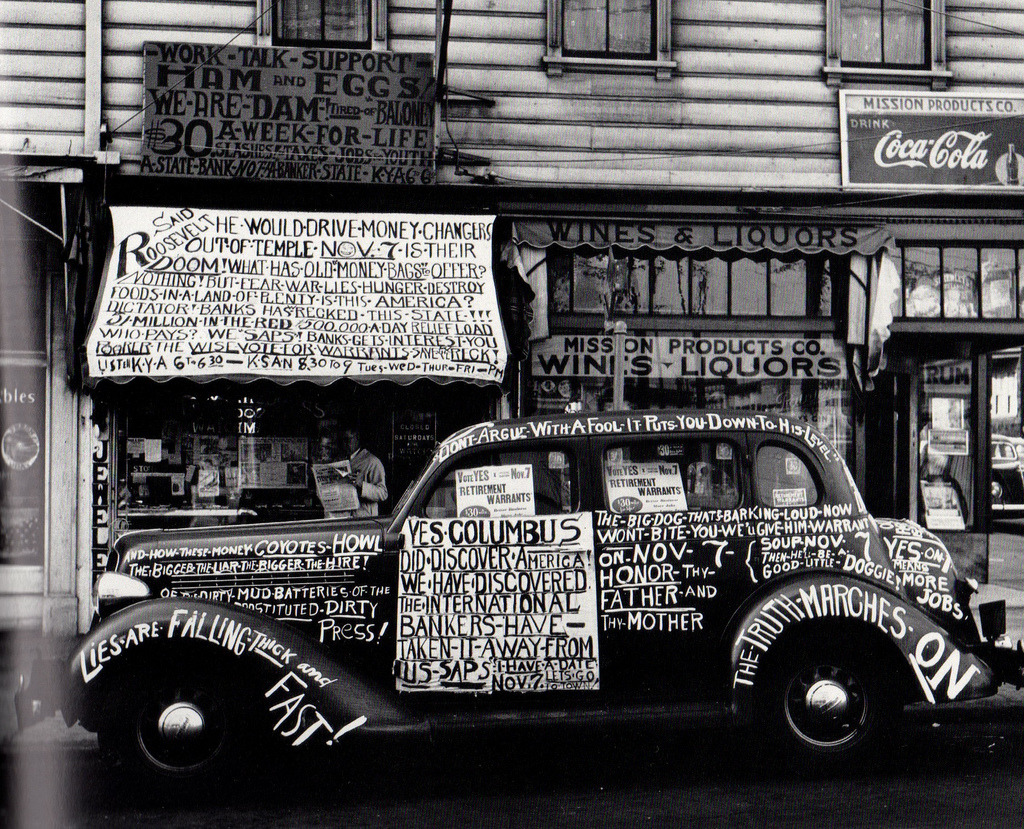 WORK-TALK-SUPPORT
HAM AND EGGS!
WE-ARE-DAM-! TIRED-OF BALONEY
$30 A-WEEK-FOR-LIFE
SLASHES TAXES JOBS YOUTH
A-STATE-BANK-NOT-A-BANKER-STATE-KYA6-6
MISSION PRODUCTS CO.
DRINK
Coca-Cola
SAID ROOSEVELT HE-WOULD-DRIVE-MONEY-CHANGERS
OUT-OF-TEMPLE-NOV.7-IS-THEIR
DOOM! WHAT-HAS-OLD-MONEY-BAGS-TO-OFFER?
NOTHING! BUT-FEAR-WAR-LIES-HUNGER-DESTROY
FOODS-IN-A-LAND-OF-PLENTY-IS-THIS-AMERICA?
DICTATOR-BANKS HAS RECKED-THIS-STATE-!!!
MILLION-IN-THE-RED 500.000-A-DAY RELIEF LOAD
WHO-PAYS? WE "SAPS" BANKS-GETS-INTEREST-YOU
THE WISE-VOTE-FOR-WARRANTS-SAVE
K-Y-A 6T-6:30 - KSAN 8.30 TO 9 TUES-WED-THUR-FRI-PM
WINES & LIQUORS
MISSION PRODUCTS CO.
WINES-LIQUORS
RUM
CLOSED
SATURDAYS
DONT-ARGUE-WITH A FOOL-IT PUTS-YOU-DOWN-TO-HIS-LEVEL
VOTE YES Nov.7
RETIREMENT
WARRANTS
VOTE YES Nov.7
RETIREMENT
WARRANTS
$30
AND-HOW-THESE-MONEY COYOTES-HOWL
THE-BIGGER-THE-LIAR-THE-BIGGER-THE-HIRE!
OF-DIRTY-MUD-BATTERIES-OF THE
PROSTITUTED-DIRTY
PRESS!
LIES-ARE-FALLING-THICK and
FAST!
YES-COLUMBUS
DID-DISCOVER-AMERICA
WE-HAVE-DISCOVERED
THE-INTERNATIONAL
BANKERS-HAVE-
TAKEN-IT-AWAY-FROM
US-SAPS-I-HAVE-A-DATE
NOV.7. LETS GO TO TOWN!
THE-BIG-DOG-THATS-BARKING-LOUD-NOW
WONT-BITE-YOU-WE'LL GIVE-HIM-WARRANT
ON-NOV-7- SOUP-NOV. 7
HONOR-THY- THEN-HE'LL-BE-A
FATHER-AND GOOD-LITTLE-DOGGIE
THY-MOTHER
YES-ON-7
MEANS
MORE
JOBS
THE-TRUTH-MARCHES-ON